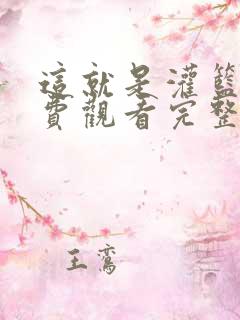 這就是灌籃
費觀看完整
王鸞